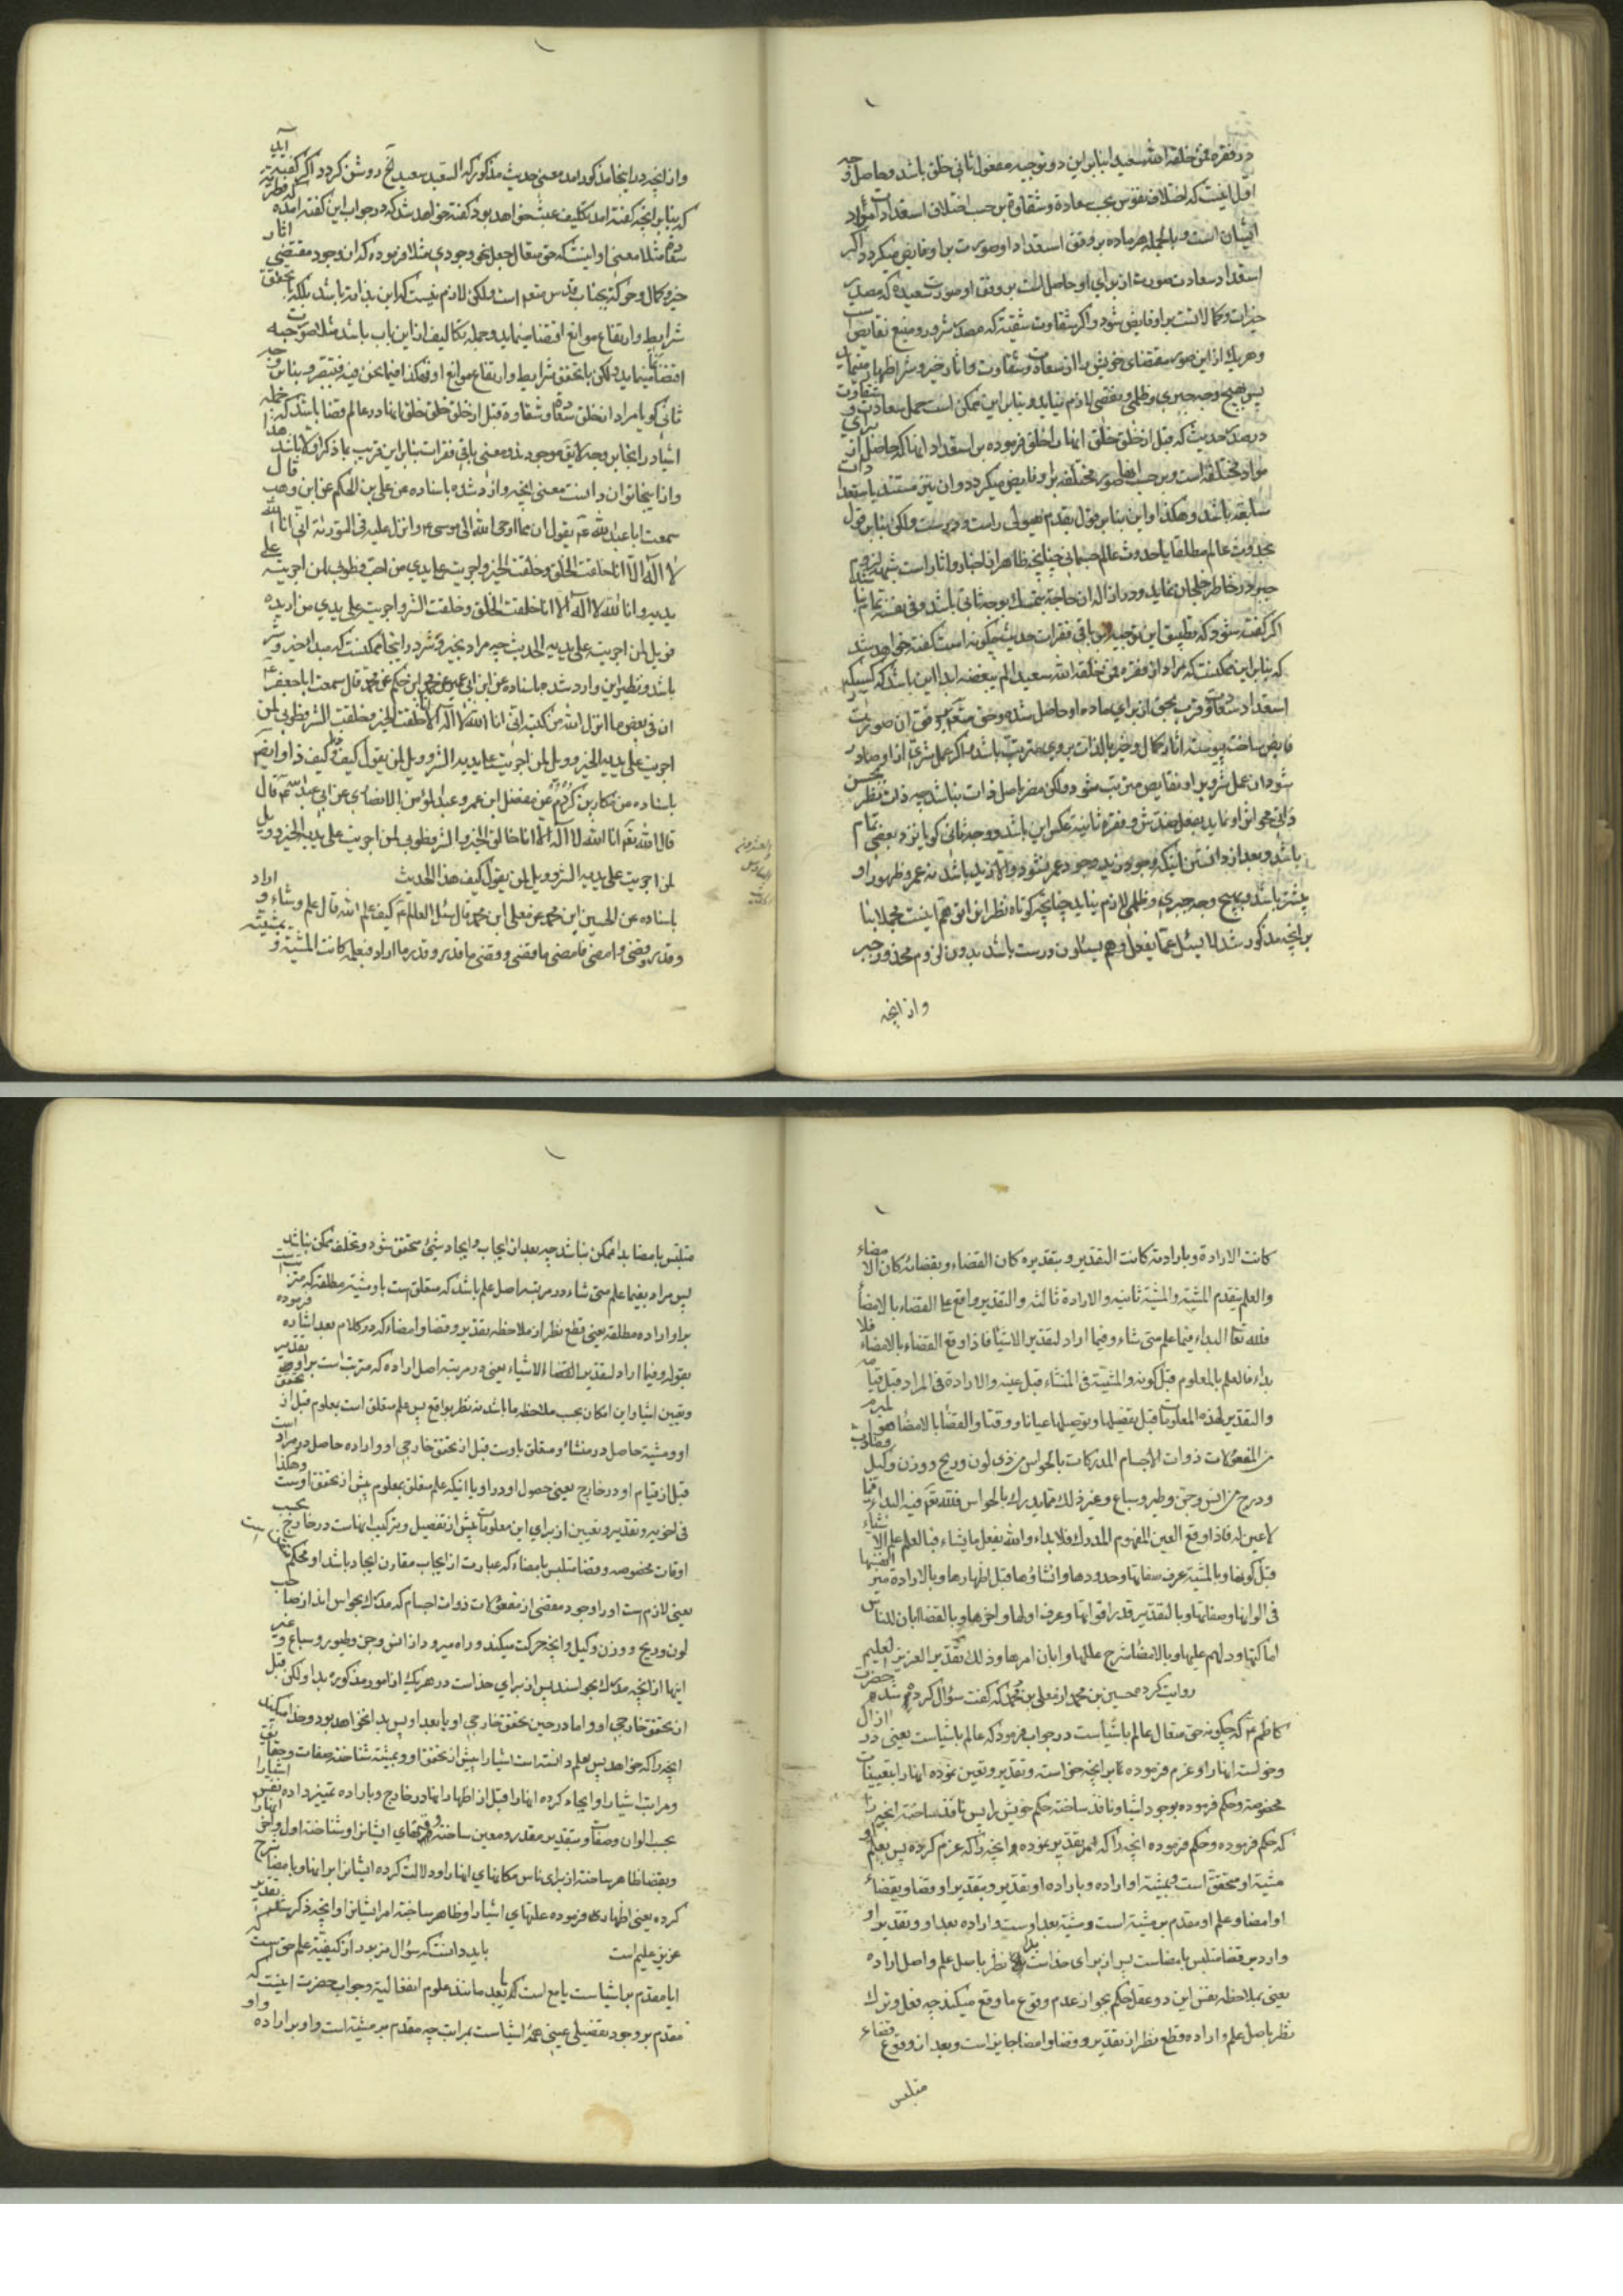 در فقره فمن خلقه الله سعیدا بنابر این دو توجیه مفعول ثانی خلق باشد و حاصل وجه
اول اینست که اختلاف نفوس بحسب سعادة و شقاوة بر حسب اختلاف استعدادات مواد
ایشان است و بالجمله هر ماده بر وفق استعداد او صورت بر او فایض میگردد اگر
استعداد سعادت صورت از برای او حاصل است بر وفق او صورت سعیده که مصدر
خیرات و کمالاتست بر او فایض شود و اگر شقاوت شقیّة که مصدر شرور و منبع نقایص است
و هر یک از این صور بمقتضای خویش را از سعادت و شقاوت و اثار خیر و شر اظهار مینماید
پس بهیچ وجه جبری و ظلمی و نقصی لازم نیاید و بنابر این ممکن است حمل سعادت و شقاوت
در صدر حدیث که قبل از خلق خلق انها را خلق فرموده بر استعداد انها که حاصل از برای
مواد مختلفه است و بر حسب انها صور مختلفه بر او فایض میگردد و ان نیز مستند باستعدادات
سابقه باشد و هکذا و این بنابر قول بقدم هیولی راست و درست و لکن بنابر قول
بحدوث عالم مطلقا یا حدوث عالم جسمانی چنانچه ظاهر از اخبار و اثار است شبهه لزوم
جبر در خاطر خلجان نماید و در ازاله ان حاجة بتمسک بوجه ثانی باشد و فی نفسه تمام نباشد
اگر گفته شود که تطبیق این توجیه بر باقی فقرات حدیث چگونه است گفته خواهد شد
که بنابر این ممکنست که مراد از فقره فمن خلقه الله سعیدا لم یبغضه ابدا این باشد که کسیکه
استعداد سعادت و قرب بحق از برای ماده او حاصل شده و حق متعال بر وفق ان صورت
فایض ساخت پیوسته اثار کمال و خیر بالذات بر وی مترتب باشد و اگر عمل شری از او صادر
شود ان عمل شر و بر او نقایص مترتب شود و لکن مضر باصل ذات نباشد چه ذات نظر بحسن
ذاتی محو اثر او نماید بفعل ضدش و فقره ثانیة عکس این باشد و وجه ثانی گویا نزد بعضی تمام
باشد و بعد از دانستن اینکه وجود زید وجود عمر نشود و الا زید باشد نه عمر و ظهور او
بیشتر باشد و بهیچ وجه جبری و ظلمی لازم نیاید چنانچه کوتاه نظران توهم اینست مجملا بنا
بر انچه مذکور شد لا یسئل عما یفعل و هم یسئلون درست باشد بدون لزوم محذور جبر
و از انچه
و از انچه در اینجا مذکور امد معنی حدیث مذکور که السعید سعید الخ روشن گردد اگر گفته اید
که بنابر انچه گفته امد تکلیف عبث خواهد بود گفته خواهد شد که در جواب این گفته امده
مثلا معنی او اینست که حق متعال بجعل نحو وجودی مثلا فرموده که ان وجود مقتضی اثار
خیر و کمال و حرکة بجناب قدس متعم است و لکن لازم نیست که این بذاته باشد بلکه با تحقق
شرایط و ارتفاع موانع اقتضا مینماید و جمله تکالیف از این باب باشد مثلا صورت حبه
اقتضا نما مینماید لکن با تحقق شرایط و ارتفاع موانع او فهکذا فیما نحن فیه فتبصر و بنابر وجه
ثانی گویا مراد از خلق سعادة و شقاوة قبل از خلق خلق خلق انها در عالم قضا باشد که جمله
اشیا در انجا بر وجه لایق موجودند و معنی باقی فقرات بنابر این قریب بما ذکر اولا باشد هذا
و از اینجا توان دانست معنی انچه وارد شده باسناده عن علی بن الحکم عن ابن وهب قال
سمعت ابا عبد الله ع یقول ان مما اوحی الله الی موسی ع و انزل علیه فی التوریة انی انا الله
لا اله الا انا خلقت الخلق و خلقت الخیر و اجریت علی یدی من احب فطوبی لمن اجریته علی
یدیه و انا الله لا اله الا انا خلقت الخلق و خلقت الشر و اجریت علی یدی من اریده
فویل لمن اجریت علی یدیه الحدیث چه مراد بخیر و شر در اینجا ممکنست که مبدا خیر و شر
باشد و نظیر این وارد شده باسناده عن ابن ابی عمیر عن محمد ابن حکیم عن محمد قال سمعت ابا جعفر ع
ان فی بعض ما انزل الله من کتبه انی انا الله لا اله الا انا خلقت الخیر و خلقت الشر فطوبی لمن
اجریت علی یدیه الخیر و ویل لمن اجریت علی یدیه الشر و ویل لمن یقول کیف ذا و کیف ذا و ایضا
باسناده عن بکار بن کردم عن مفضل ابن عمر و عبد المؤمن الانصاری عن ابی عبد الله ع قال
قال الله تعم انا الله لا اله الا انا خالق الخیر و الشر فطوبی لمن اجریت علی یدیه الخیر و ویل
لمن اجریت علی یدیه الشر و ویل لمن یقول کیف هذا الحدیث
باسناده عن الحسین ابن محمد عن معلی ابن محمد قال سئل العالم ع کیف علم الله قال علم و شاء و اراد
و قدر و قضی و امضی فامضی ما قضی و قضی ما قدر و قدر ما اراد فبعلمه کانت المشیة و بمشیته
کانت الارادة و بارادته کانت التقدیر و بتقدیره کان القضاء و بقضائه کان الامضاء
و العلم متقدم المشیة و المشیة ثانیه و الارادة ثالثه و التقدیر واقع علی القضاء بالامضاء
فلله تعا البداء فیما علم متی شاء و فیما اراد لتقدیر الاشیاء فاذا وقع القضاء بالامضاء فلا
بداء فالعلم بالمعلوم قبل کونه و المشیة فی المنشاء قبل عینه و الارادة فی المراد قبل قیامه
و التقدیر لهذه المعلومات قبل تفصیلها و توصیلها عیانا و وقتا و القضا بالامضا هو المبرم
من المفعولات ذوات الاجسام المدرکات بالحواس من ذی لون و ریح و وزن و کیل
و درج من انس و جن و طیر و سباع و غیر ذلک مما یدرک بالحواس فلله تعم فیه البداء مما
لا عین له فاذا وقع العین المفهوم المدرک فلا بداء و الله یفعل ما یشاء فبالعلم علم الاشیاء
قبل کونها و بالمشیة عرف صفاتها و حدودها و انشاؤها قبل اظهارها و بالارادة میز انفسها
فی الوانها و صفاتها و بالتقدیر قدر اقواتها و عرف اولها و اخرها و بالقضا ابان للناس
اماکنها و دلهم علیها و بالامضا شرح عللها و ابان امرها و ذلک تقدیر العزیز العلیم
روایت کرده حسین بن محمد از معلی بن محمد که گفت سؤال کرده شده حضرت
کاظم ع که چگونه حق متعال عالم باشیاست در جواب فرمود که عالم باشیاست یعنی در ازال
و خواست انها را و عزم فرموده بر انچه خواسته و تقدیر و تعین نموده انها را بتعیینات
مخصوصه و حکم فرموده بوجود اشیا و نافذ ساخته حکم خویش را پس نافذ ساخته انچیز را
که حکم فرموده و حکم فرموده انچه را که تقدیر نموده و انچه را که عزم کرده پس بعلم او
مشیة او متحقق است و بمشیة او اراده و باراده او تقدیر و بتقدیر او قضا و بقضاء
او امضا و علم او مقدم بر مشیة است و مشیة بعد اوست و اراده بعد او و تقدیر او
وارد بر قضا متلبس بامضاست پس از برای خداست بدا نظر باصل علم و اصل اراده
یعنی بملاحظه نفس این دو عقل حکم بجواز عدم وقوع ما وقع میکند چه فعل و ترک
نظر باصل علم و اراده و قطع نظر از تقدیر و قضا و امضا جایز است و بعد از وقوع قضاء
متلبس
متلبس بامضا بدا ممکن نباشد چه بعد از ایجاب و ایجاد شیئ متحقق شود و تخلف ممکن نباشد
پس مراد بفیما علم متی شاء در مرتبه اصل علم باشد که متعلق است باو مشیة مطلقه که مترتبست
بر او اراده مطلقه یعنی قطع نظر از ملاحظه تقدیر و قضا و امضاء که در کلام بعد اشاره فرموده
بقوله و فیما اراد لتقدیر الاشیاء یعنی در مرتبه اصل اراده که مترتب است بر او تقدیر
و تعیین اشیا و این امکان بحسب ملاحظه ما باشد نه نظر بواقع پس علم متعلق است بمعلوم قبل از تحقق
او و مشیة حاصل در منشاء و متعلق باوست قبل از تحقق خارجی او و اراده حاصل در مراد است
قبل از قیام او در خارج یعنی حصول او در او یا اینکه علم متعلق بمعلوم پیش از تحقق اوست و هکذا
فی اخویه و تقدیر و تعیین از برای این معلومات پیش از تفصیل و ترکیب انهاست در خارج بحسب
اوقات مخصوصه و قضا متلبس بامضاء که عبارت از ایجاب مقارن ایجاد باشد او محکم است
یعنی لازم است او را وجود مقضی از مفعولات ذوات اجسام که مدرک بحواس اند از صاحب
لون و ریح و وزن و کیل و انچه حرکت میکند و راه میرود از انس و جن و طیور و سباع و غیر
اینها از انچه مدرک بحواسند پس از برای خداست در هر یک از امور مذکوره بدا و لکن قبل
از تحقق خارجی او و اما در حین تحقق خارجی او یا بعد او پس بدا نخواهد بود و خدا میکند
انچه را که خواهد پس بعلم دانسته است اشیا را پیش از تحقق او و بمشیة شناخته صفات و حقایق
و مراتب اشیا را و ایجاد کرده انها را قبل از اظهار انها در خارج و باراده تمییز داده نفس اشیا را
بحسب الوان و صفات و بتقدیر مقدر و معین ساخته قوتهای ایشانرا و شناخته اول و اخر انها را
و بقضا ظاهر ساخته از برای ناس مکانهای انها را و دلالت کرده ایشانرا بر انها و بامضا شرح
کرده یعنی اظهار فرموده علتهای اشیا را و ظاهر ساخته امر ایشانرا و انچه ذکر شد تقدیر
عزیز علیم است باید دانست که سؤال مزبور از کیفیة علم حق است که
ایا مقدم بر اشیاست یا مع است یا بعد مانند علوم انفعالیه و جواب حضرت اینست که
مقدم بر وجود تفصیلی عینی همه اشیاست بمراتب چه مقدم بر مشیة است و او بر اراده و او